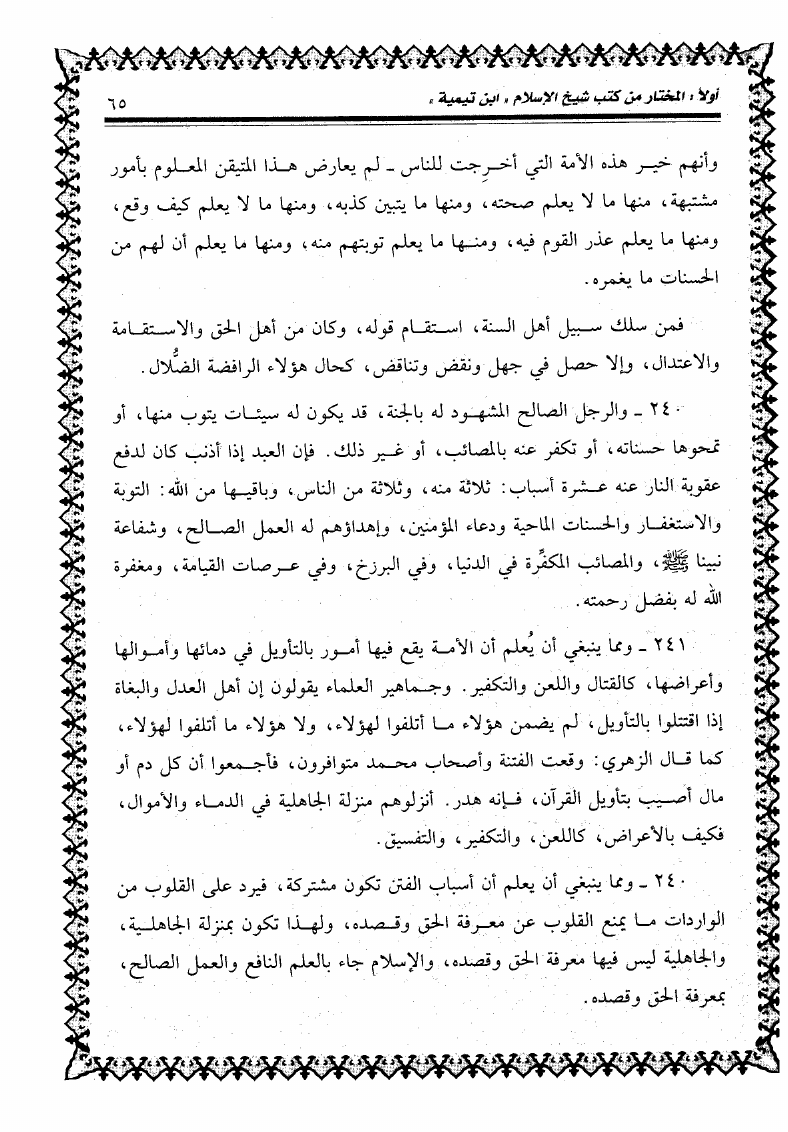 أولاً : المختار من كتب شيخ الإسلام « ابن تيمية » ٦٥
وأنهم خير هذه الأمة التي أخرِجت للناس ـ لم يعارض هذا المتيقن المعلوم بأمور
مشتبهة، منها ما لا يعلم صحته، ومنها ما يتبين كذبه، ومنها ما لا يعلم كيف وقع،
ومنها ما يعلم عذر القوم فيه، ومنها ما يعلم توبتهم منه، ومنها ما يعلم أن لهم من
الحسنات ما يغمره.
فمن سلك سبيل أهل السنة، استقام قوله، وكان من أهل الحق والاستقامة
والاعتدال، وإلا حصل في جهل ونقض وتناقض، كحال هؤلاء الرافضة الضُّلال.
٢٤٠ ـ والرجل الصالح المشهود له بالجنة، قد يكون له سيئات يتوب منها، أو
تمحوها حسناته، أو تكفر عنه بالمصائب، أو غير ذلك. فإن العبد إذا أذنب كان لدفع
عقوبة النار عنه عشرة أسباب: ثلاثة منه، وثلاثة من الناس، وباقيها من الله: التوبة
والاستغفار والحسنات الماحية ودعاء المؤمنين، وإهداؤهم له العمل الصالح، وشفاعة
نبينا ﷺ، والمصائب المكفِّرة في الدنيا، وفي البرزخ، وفي عرصات القيامة، ومغفرة
الله له بفضل رحمته.
٢٤١ ـ ومما ينبغي أن يُعلم أن الأمة يقع فيها أمور بالتأويل في دمائها وأموالها
وأعراضها، كالقتال واللعن والتكفير. وجماهير العلماء يقولون إن أهل العدل والبغاة
إذا اقتتلوا بالتأويل، لم يضمن هؤلاء ما أتلفوا لهؤلاء، ولا هؤلاء ما أتلفوا لهؤلاء،
كما قال الزهري: وقعت الفتنة وأصحاب محمد متوافرون، فأجمعوا أن كل دم أو
مال أصيب بتأويل القرآن، فإنه هدر. أنزلوهم منزلة الجاهلية في الدماء والأموال،
فكيف بالأعراض، كاللعن، والتكفير، والتفسيق.
٢٤٠ ـ ومما ينبغي أن يعلم أن أسباب الفتن تكون مشتركة، فيرد على القلوب من
الواردات ما يمنع القلوب عن معرفة الحق وقصده، ولهذا تكون بمنزلة الجاهلية،
والجاهلية ليس فيها معرفة الحق وقصده، والإسلام جاء بالعلم النافع والعمل الصالح،
بمعرفة الحق وقصده.